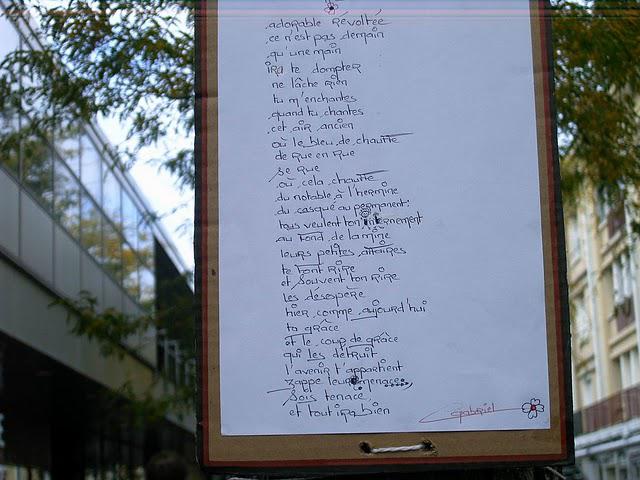 adorable révoltée
ce n'est pas demain
qu'une main
ira te dompter
ne lâche rien
tu m'enchantes
quand tu chantes
cet air ancien
où le bleu de chauffe
de rue en rue
se rue
où cela chauffe
du notable à l'hermine
du casqué au permanent
tous veulent ton internement
au fond de la mine
leurs petites affaires
te font rire
et souvent ton rire
les désespère
hier comme aujourd'hui
ta grâce
et le coup de grâce
qui les détruit
l'avenir t'appartient
zappe leurs menaces
sois tenace
et tout ira bien
Gabriel